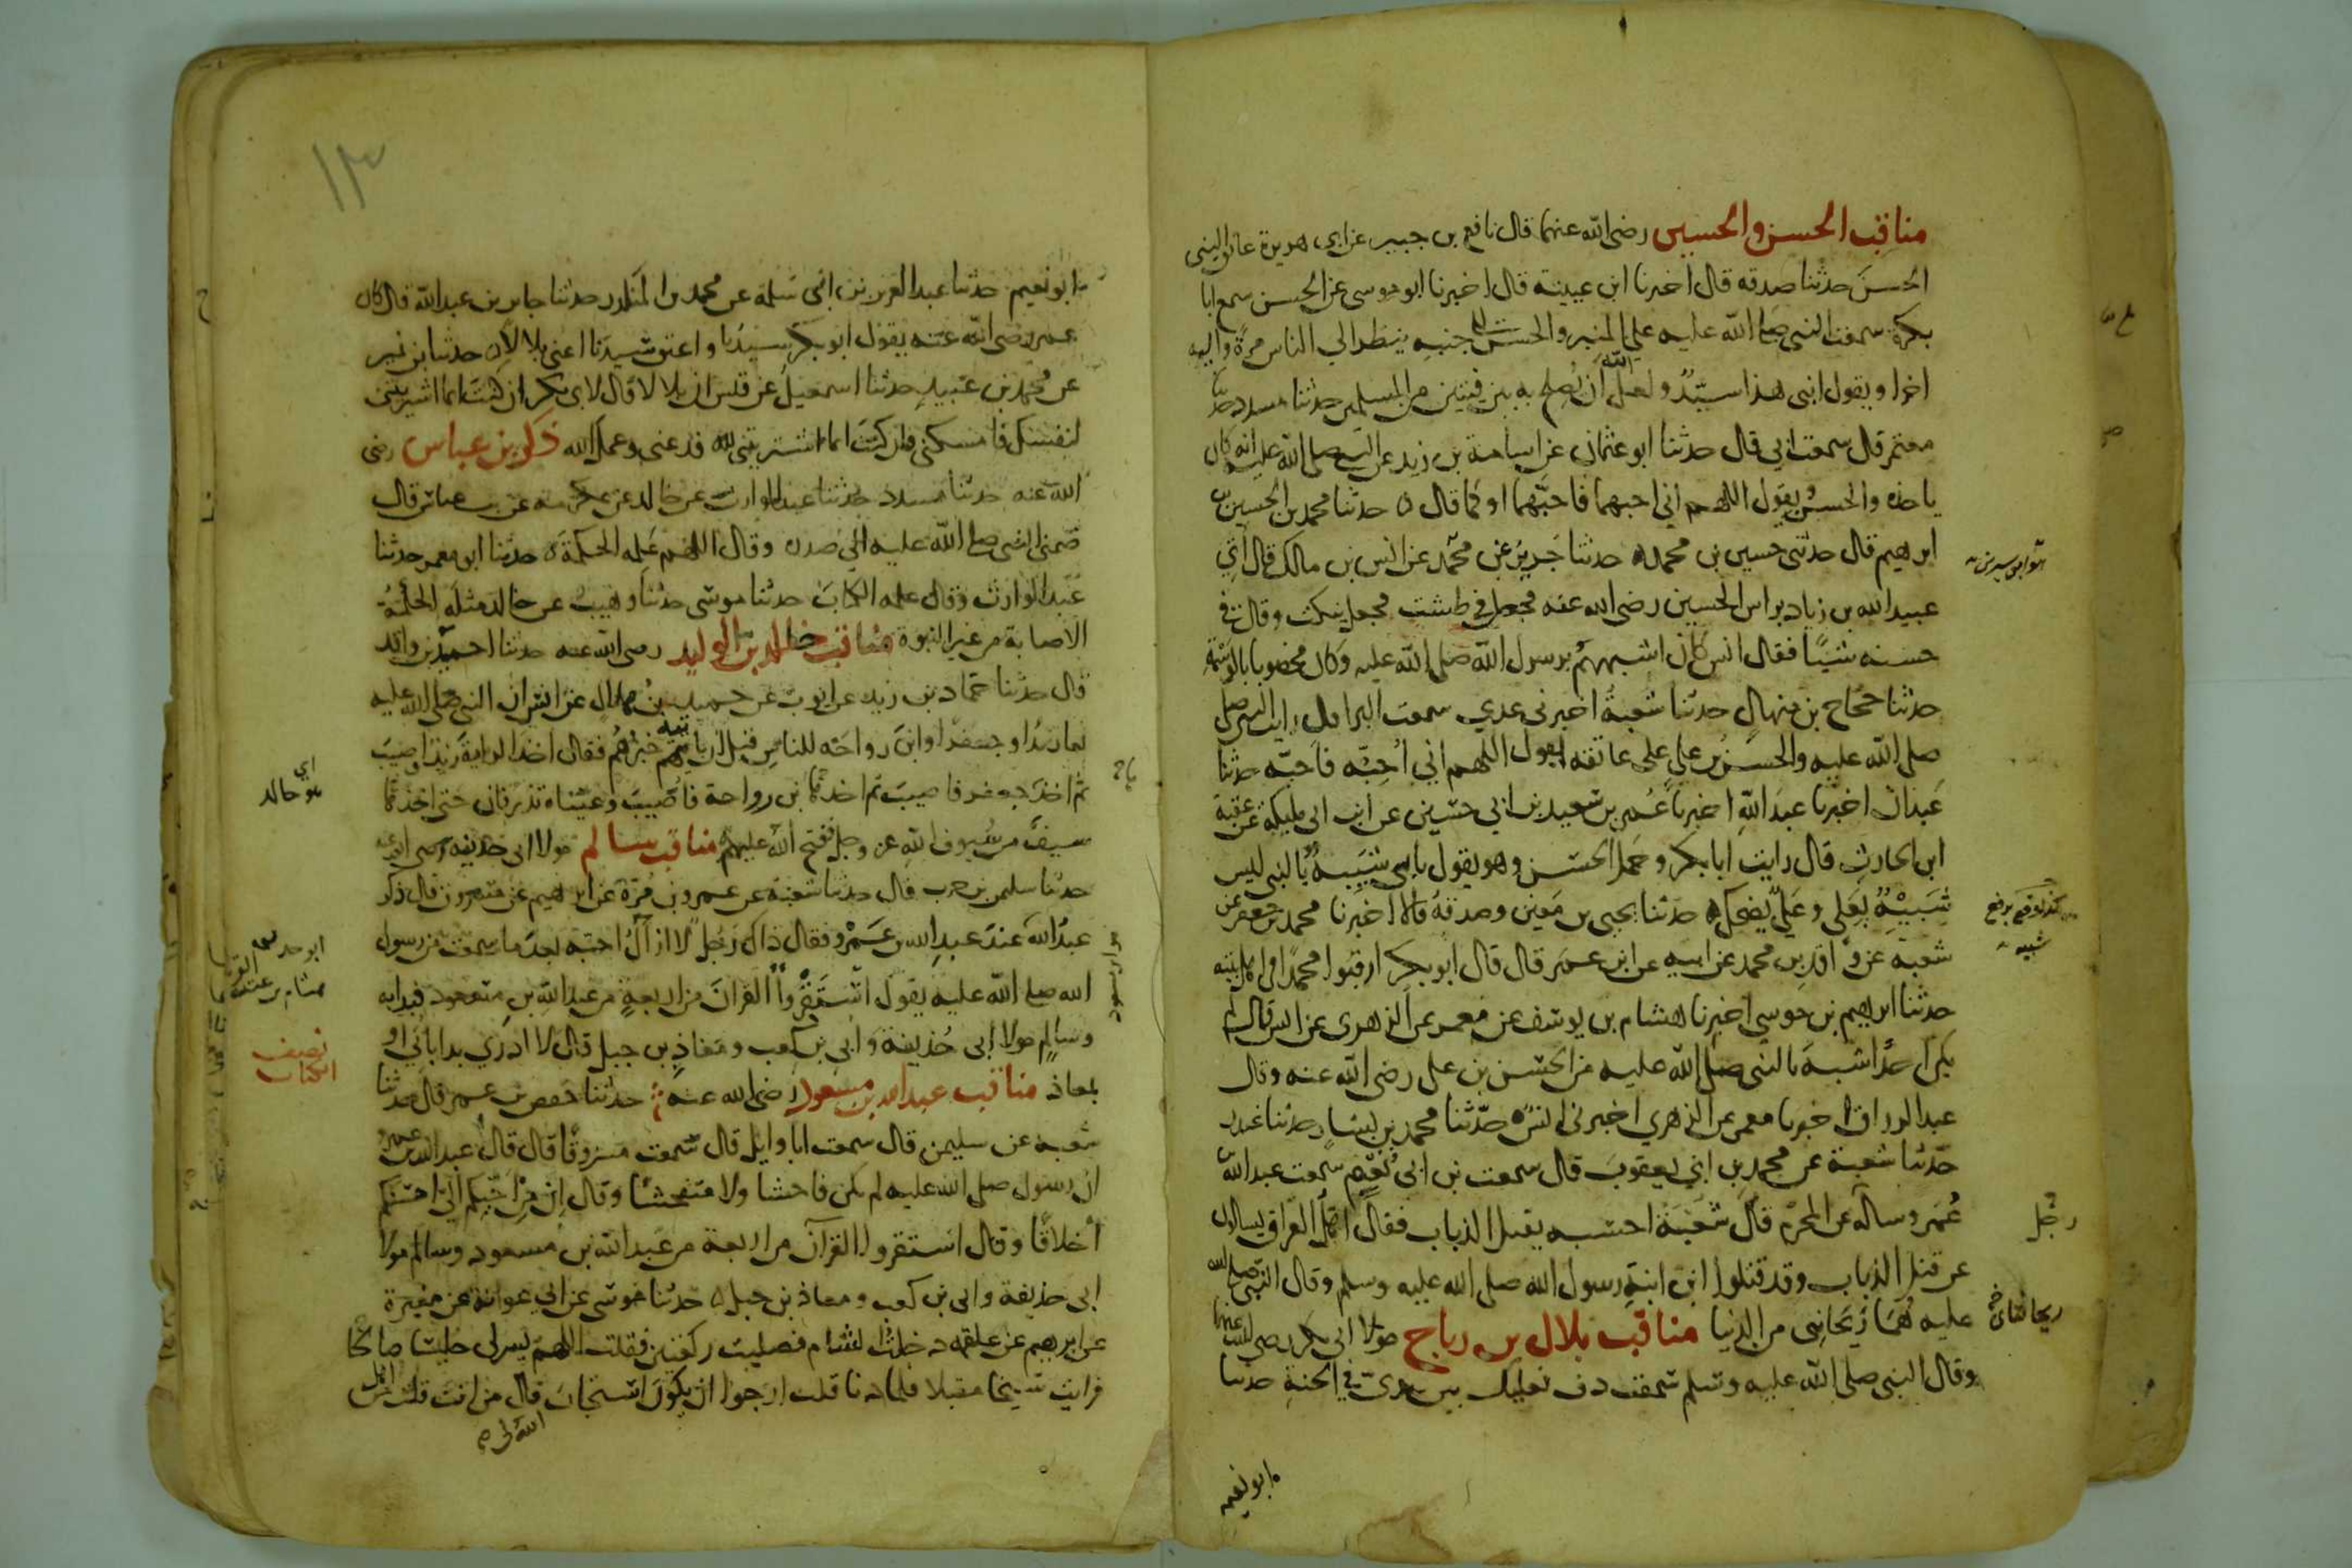 مناقب الحسن والحسين رضى الله عنهما قال نافع بن جبير عن ابى هريرة عانق النبى
الحسن حدثنا صدقه قال اخبرنا ابن عيينة قال اخبرنا ابو موسى عن الحسن سمع ابا
بكرة سمعت النبى صلى الله عليه على المنبر والحسن الى جنبه ينظر الى الناس مرة واليه
اخرا ويقول ابنى هذا سيّد ولعل الله ان يصلح به بين فيتين من المسلمين حدثنا مسدد حدثنا
معتمر قال سمعت ابى قال حدثنا ابو عثمان عن اسامة بن زيد عن النبى صلى الله عليه انه كان
ياخذه والحسن ويقول اللهم انى احبهما فاحبّهما او كما قال ه حدثنا محمد بن الحسين بن
ابرهيم قال حدثنى حسين بن محمد ه حدثنا جرير عن محمّد عن انس بن مالك قال اتي
عبيد الله بن زياد براس الحسين رضى الله عنه فجعل فى طست فجعل ينكت وقال فى
حسنه شيئا فقال انس كان اشبههم برسول الله صلى الله عليه وكان مخضوبا بالوسمة
حدثنا حجاج بن منهال حدثنا شعبة اخبرنى عدي سمعت البرا قال رايت النبى صلى
صلى الله عليه والحسن بن علي على عاتقه يقول اللهم اني أحبّه فاحبّه حدثنا
عبدان اخبرنا عبد الله اخبرنا عمر بن سعيد بن ابي حسين عن ابن ابى مليكة عن عقبة
ابن الحارث قال رايت ابا بكر وحمل الحسن وهو يقول بابى شبيه بالنبى ليس
شبيه بعلى وعلىّ يضحك ه حدثنا يحيى بن معين وصدقة قالا اخبرنا محمد بن جعفر عن
شعبة عن واقد بن محمد عن ابيه عن ابن عمر قال قال ابو بكر ارقبوا محمدا فى اهل بيته
حدثنا ابرهيم بن موسى اخبرنا هشام بن يوسف عن معمر عن الزهرى عن انس قال لم
يكن احدا اشبه بالنبى صلى الله عليه من الحسن بن على رضى الله عنه وقال
عبد الرزاق اخبرنا معمر عن الزهري اخبرنى انس ه حدّثنا محمد بن بشار حدثنا غندر
حدّثنا شعبة عن محمد بن ابي يعقوب قال سمعت بن ابى نعيم سمعت عبد الله بن
عمر وساله عن المحرم قال شعبة احسبه يقتل الذباب فقال اهل العراق يسالون
عن قتل الذباب وقد قتلوا ابن ابنة رسول الله صلى الله عليه وسلم وقال النبى صلى الله
عليه هما ريحانتى من الدنيا مناقب بلال بن رباح مولا ابى بكر رضى الله عنهما
وقال النبى صلى الله عليه وسلم سمعت دف نعليك بين يدى فى الجنة حدثنا
ابو نعيم
هو ابن سيرين
برفع
شبيه
رجل
ريحانتاى
١٣
ابو نعيم حدثنا عبد العزيز بن ابى سلمة عن محمد بن المنكدر حدثنا جابر بن عبد الله قال كان
عمر رضى الله عنه يقول ابو بكر سيدنا واعتق سيدنا اعنى بلالا ه حدثنا بن نمير
عن محمد بن عبيد حدثنا اسمعيل عن قيس ان بلالا قال لابى بكر ان كنت انما اشتريتنى
لنفسك فامسكنى وان كنت انما اشتريتنى لله فدعنى وعمل الله ذكر بن عباس رضى
الله عنه حدثنا مسدد حدثنا عبد الوارث عن خالد عن عكرمه عن بن عباس قال
ضمنى النبى صلى الله عليه الى صدره وقال اللهم علمه الحكمة ه حدثنا ابو معمر حدثنا
عبد الوارث وقال علمه الكتاب حدثنا موسى حدثنا وهيب عن خالد مثله الحكمة
الاصابة من غير النبوة مناقب خالد بن الوليد رضى الله عنه حدثنا احمد بن واقد
قال حدثنا حماد بن زيد عن ايوب عن حميد بن هلال عن انس ان النبى صلى الله عليه
نعا زيدا وجعفرا وابن رواحه للناس قبل ان ياتيهم خبرهم فقال اخذ الراية زيد فاصيب
ثم اخذ جعفر فاصيب ثم اخذها بن رواحة فاصيب وعيناه تذرفان حتى اخذها
سيف من سيوف الله عز وجل ففتح الله عليهم مناقب سالم مولا ابى حذيفه رضى الله عنه
حدثنا سليمن بن حرب قال حدثنا شعبة عن عمرو بن مرّة عن ابرهيم عن مسروق قال ذكر
عبد الله عند عبد الله بن عمرو فقال ذاك رجل لا ازال احبه بعد ما سمعت من رسول
الله صلى الله عليه يقول استقروا القران من اربعة من عبد الله بن مسعود فبدابه
وسالم مولا ابى حذيفة وابى بن كعب ومعاذ بن جبل قال لا ادري بدا بابى او
بمعاذ مناقب عبد الله بن مسعود رضى الله عنه حدثنا حفص بن عمر قال حدثنا
شعبة عن سليمن قال سمعت ابا وايل قال سمعت مسروقا قال قال عبد الله بن عمرو
ان رسول صلى الله عليه لم يكن فاحشا ولا متفحشا وقال ان من احبكم الى احسنكم
أخلاقا وقال استقروا القرآن من اربعة من عبد الله بن مسعود وسالم مولا
ابى حذيفة وابى بن كعب ومعاذ بن جبل ه حدثنا موسى عن ابى عوانة عن مغيرة
عن ابرهيم عن علقمه دخلت الشام فصليت ركعتين فقلت اللهم يسر لى جليسا صالحا
فرايت شيخا مقبلا فلما دنا قلت ارجوا ان يكون استجاب قال من انت قلت من اهل
الله لى
اي
هو خالد
نصف
الكتاب